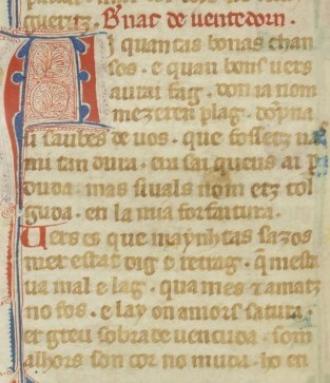 guertz. Bnat de uentedorn.
Ai quantas bonas chan
sos. e quan bons uers
aurai fag. don ia nom
mezeren plag. dõpna
si saubes de uos. que fossetz
mi tan dura. cui sai queus ai p
duda. mas siuals nom etz tol
guda. en la mia forfaitura.
Uers es que maynhtas sazos
mer estat dig e retrag. q̃ mest
ua mal e lag. qua mes e amatz
no fos. e lay on amors satura.
er greu sobra de uencuda. som
alhors son cor no muda. ho en